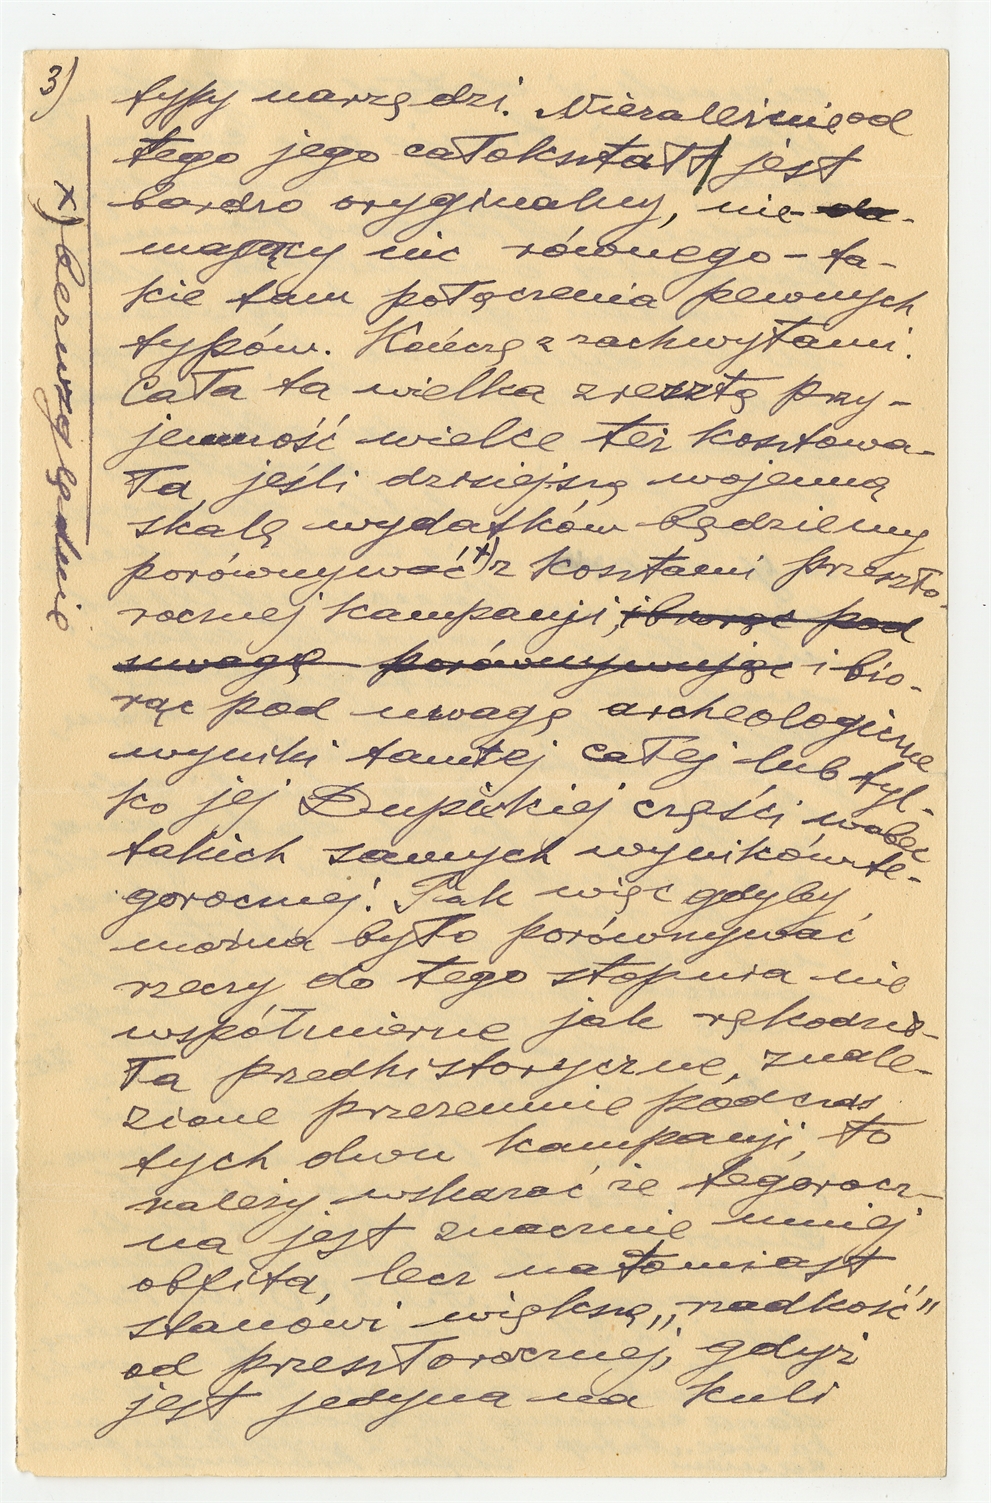 3)
typy narzędzi. Niezależnie od
tego jego całokształt jest
bardzo oryginalny, nie
mający nic równego - ta-
kie tam połączenia pewnych
typów. Kończę z zachwytami.
Cała ta wielka zresztą przy-
jemność wielce też kosztowa-
ła, jeśli dzisiejszą wojenną
skalę wydatków będziemy
porównywać x) z kosztami przeszło-
rocznej kampanji, i biorąc pod
uwagę porównywując i bio-
rąc pod uwagę archeologiczne
wyniki tamtej całej lub tyl-
ko jej Dupickiej części wobec
takich samych wyników te-
gorocznej! Tak więc gdyby
można było porównywać
rzeczy do tego stopnia nie
współmierne jak rękodzie-
ła przedhistoryczne, znale-
zione przezemnie podczas
tych dwu kampanji, to
należy wskazać że tegorocz-
na jest znacznie mniej
obfita, lecz natomiast
stanowi większą „rzadkość"
od przeszłorocznej, gdyż
jest jedyna na kuli
x) bezwzględnie